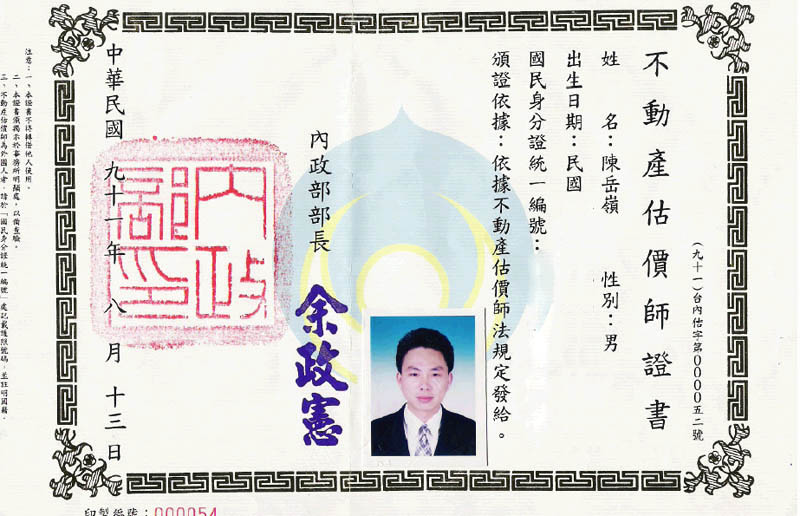 不動產估價師證書
(九十一)台內估字第0000五二號
姓 名：陳岳嶺 性別：男
出生日期：民國
國民身分證統一編號：
頒證依據：依據不動產估價師法規定發給。
內政部部長 余政憲
內政部印
中華民國 九十一年 八 月 十三 日
注意：一、本證書不得轉借他人使用。
二、本證書須揭示於事務所明顯處，以備查驗。
三、不動產估價師為外國人者，請於「國民身分證統一編號」處記載護照號碼，並註明國籍。
印製編號：000054